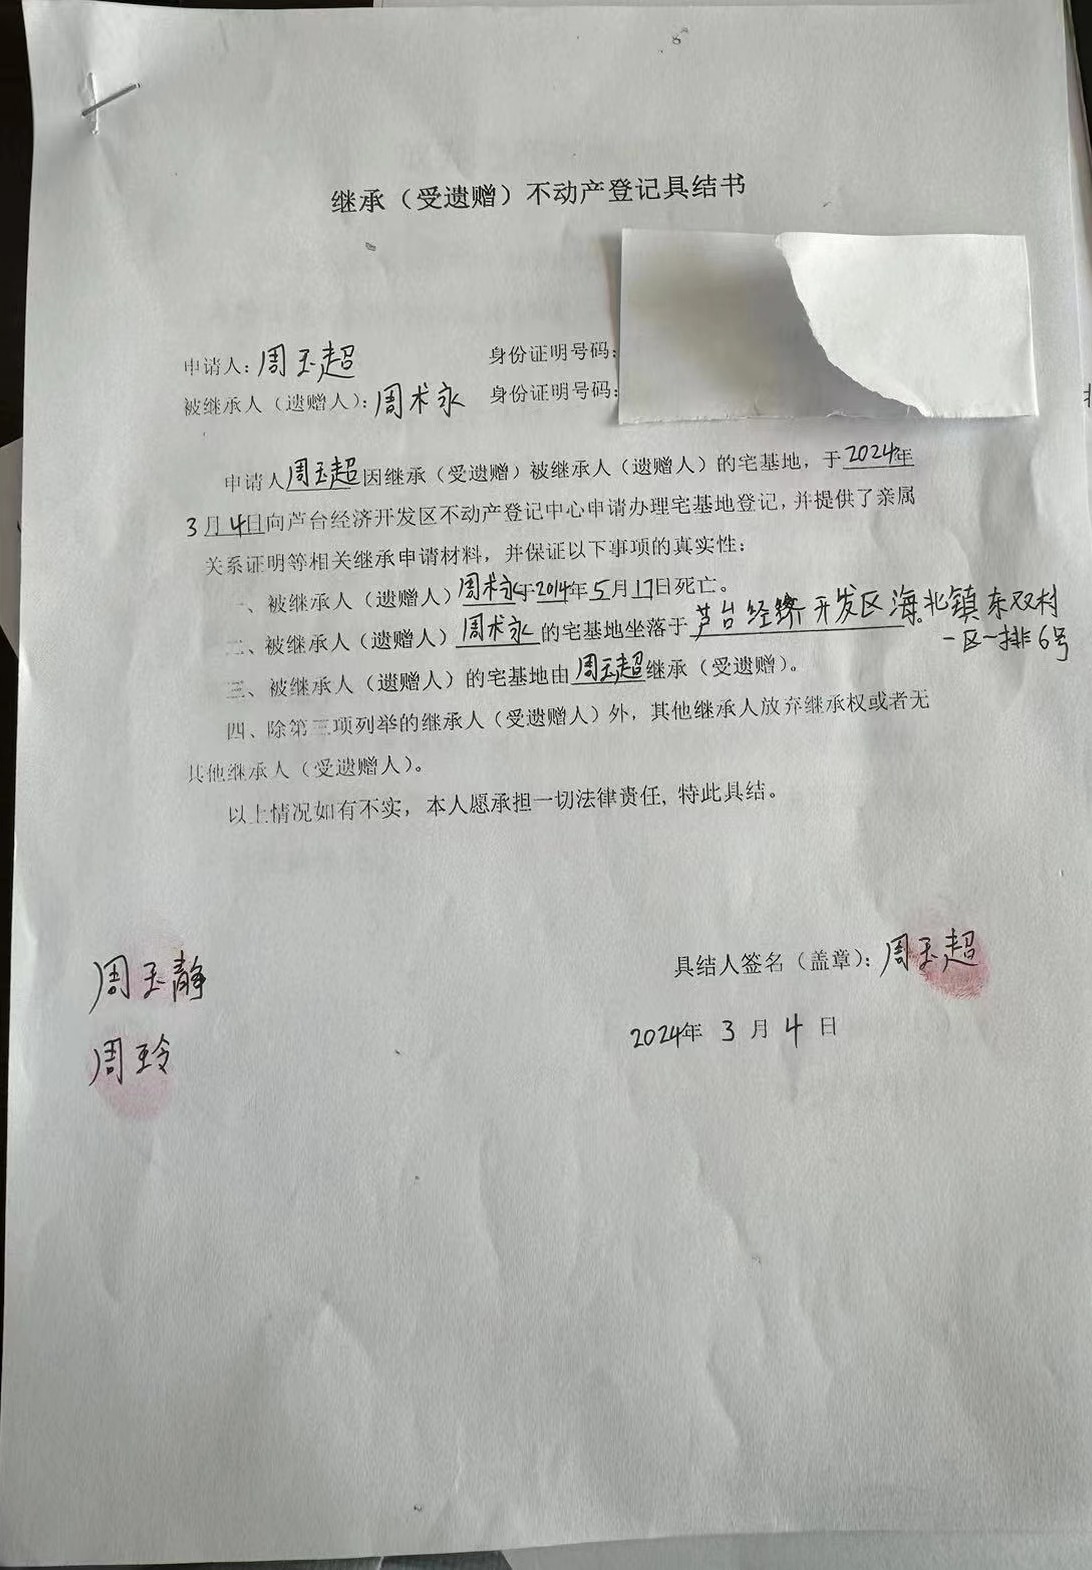 继承（受遗赠）不动产登记具结书
申请人：周玉超 身份证明号码：
被继承人（遗赠人）：周术永 身份证明号码：
申请人周玉超因继承（受遗赠）被继承人（遗赠人）的宅基地，于2024年
3月4日向芦台经济开发区不动产登记中心申请办理宅基地登记，并提供了亲属
关系证明等相关继承申请材料，并保证以下事项的真实性：
一、被继承人（遗赠人）周术永于2014年5月17日死亡。
二、被继承人（遗赠人）周术永的宅基地坐落于芦台经济开发区海北镇东双村
一区一排6号
三、被继承人（遗赠人）的宅基地由周玉超继承（受遗赠）。
四、除第三项列举的继承人（受遗赠人）外，其他继承人放弃继承权或者无
其他继承人（受遗赠人）。
以上情况如有不实，本人愿承担一切法律责任，特此具结。
具结人签名（盖章）：周玉超
2024年3月4日
周玉静
周玲